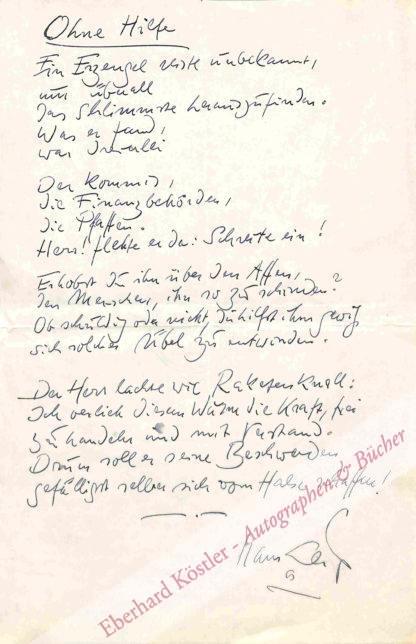 Ohne Hilfe
Ein Erzengel reiste unbekannt,
um überall
das Schlimmste herauszufinden.
Was er fand,
war dreierlei
Der Kommiß,
die Finanzbehörden,
die Pfaffen.
Herr! flehte er da: Schreite ein!
Erhobst du ihn über den Affen,
den Menschen, ihn so zu schinden?
Ob schuldig oder nicht du hilfst ihm gewiß
sich solcher Übel zu entwinden.
Der Herr lachte wie Raketenknall:
Ich verlieh diesem Wurm die Kraft, frei
zu handeln und mit Verstand.
Drum soll er seine Beschwerden
gefälligst selber sich vom Halse schaffen!
Hans
Eberhard Köstler - Autographen & Bücher